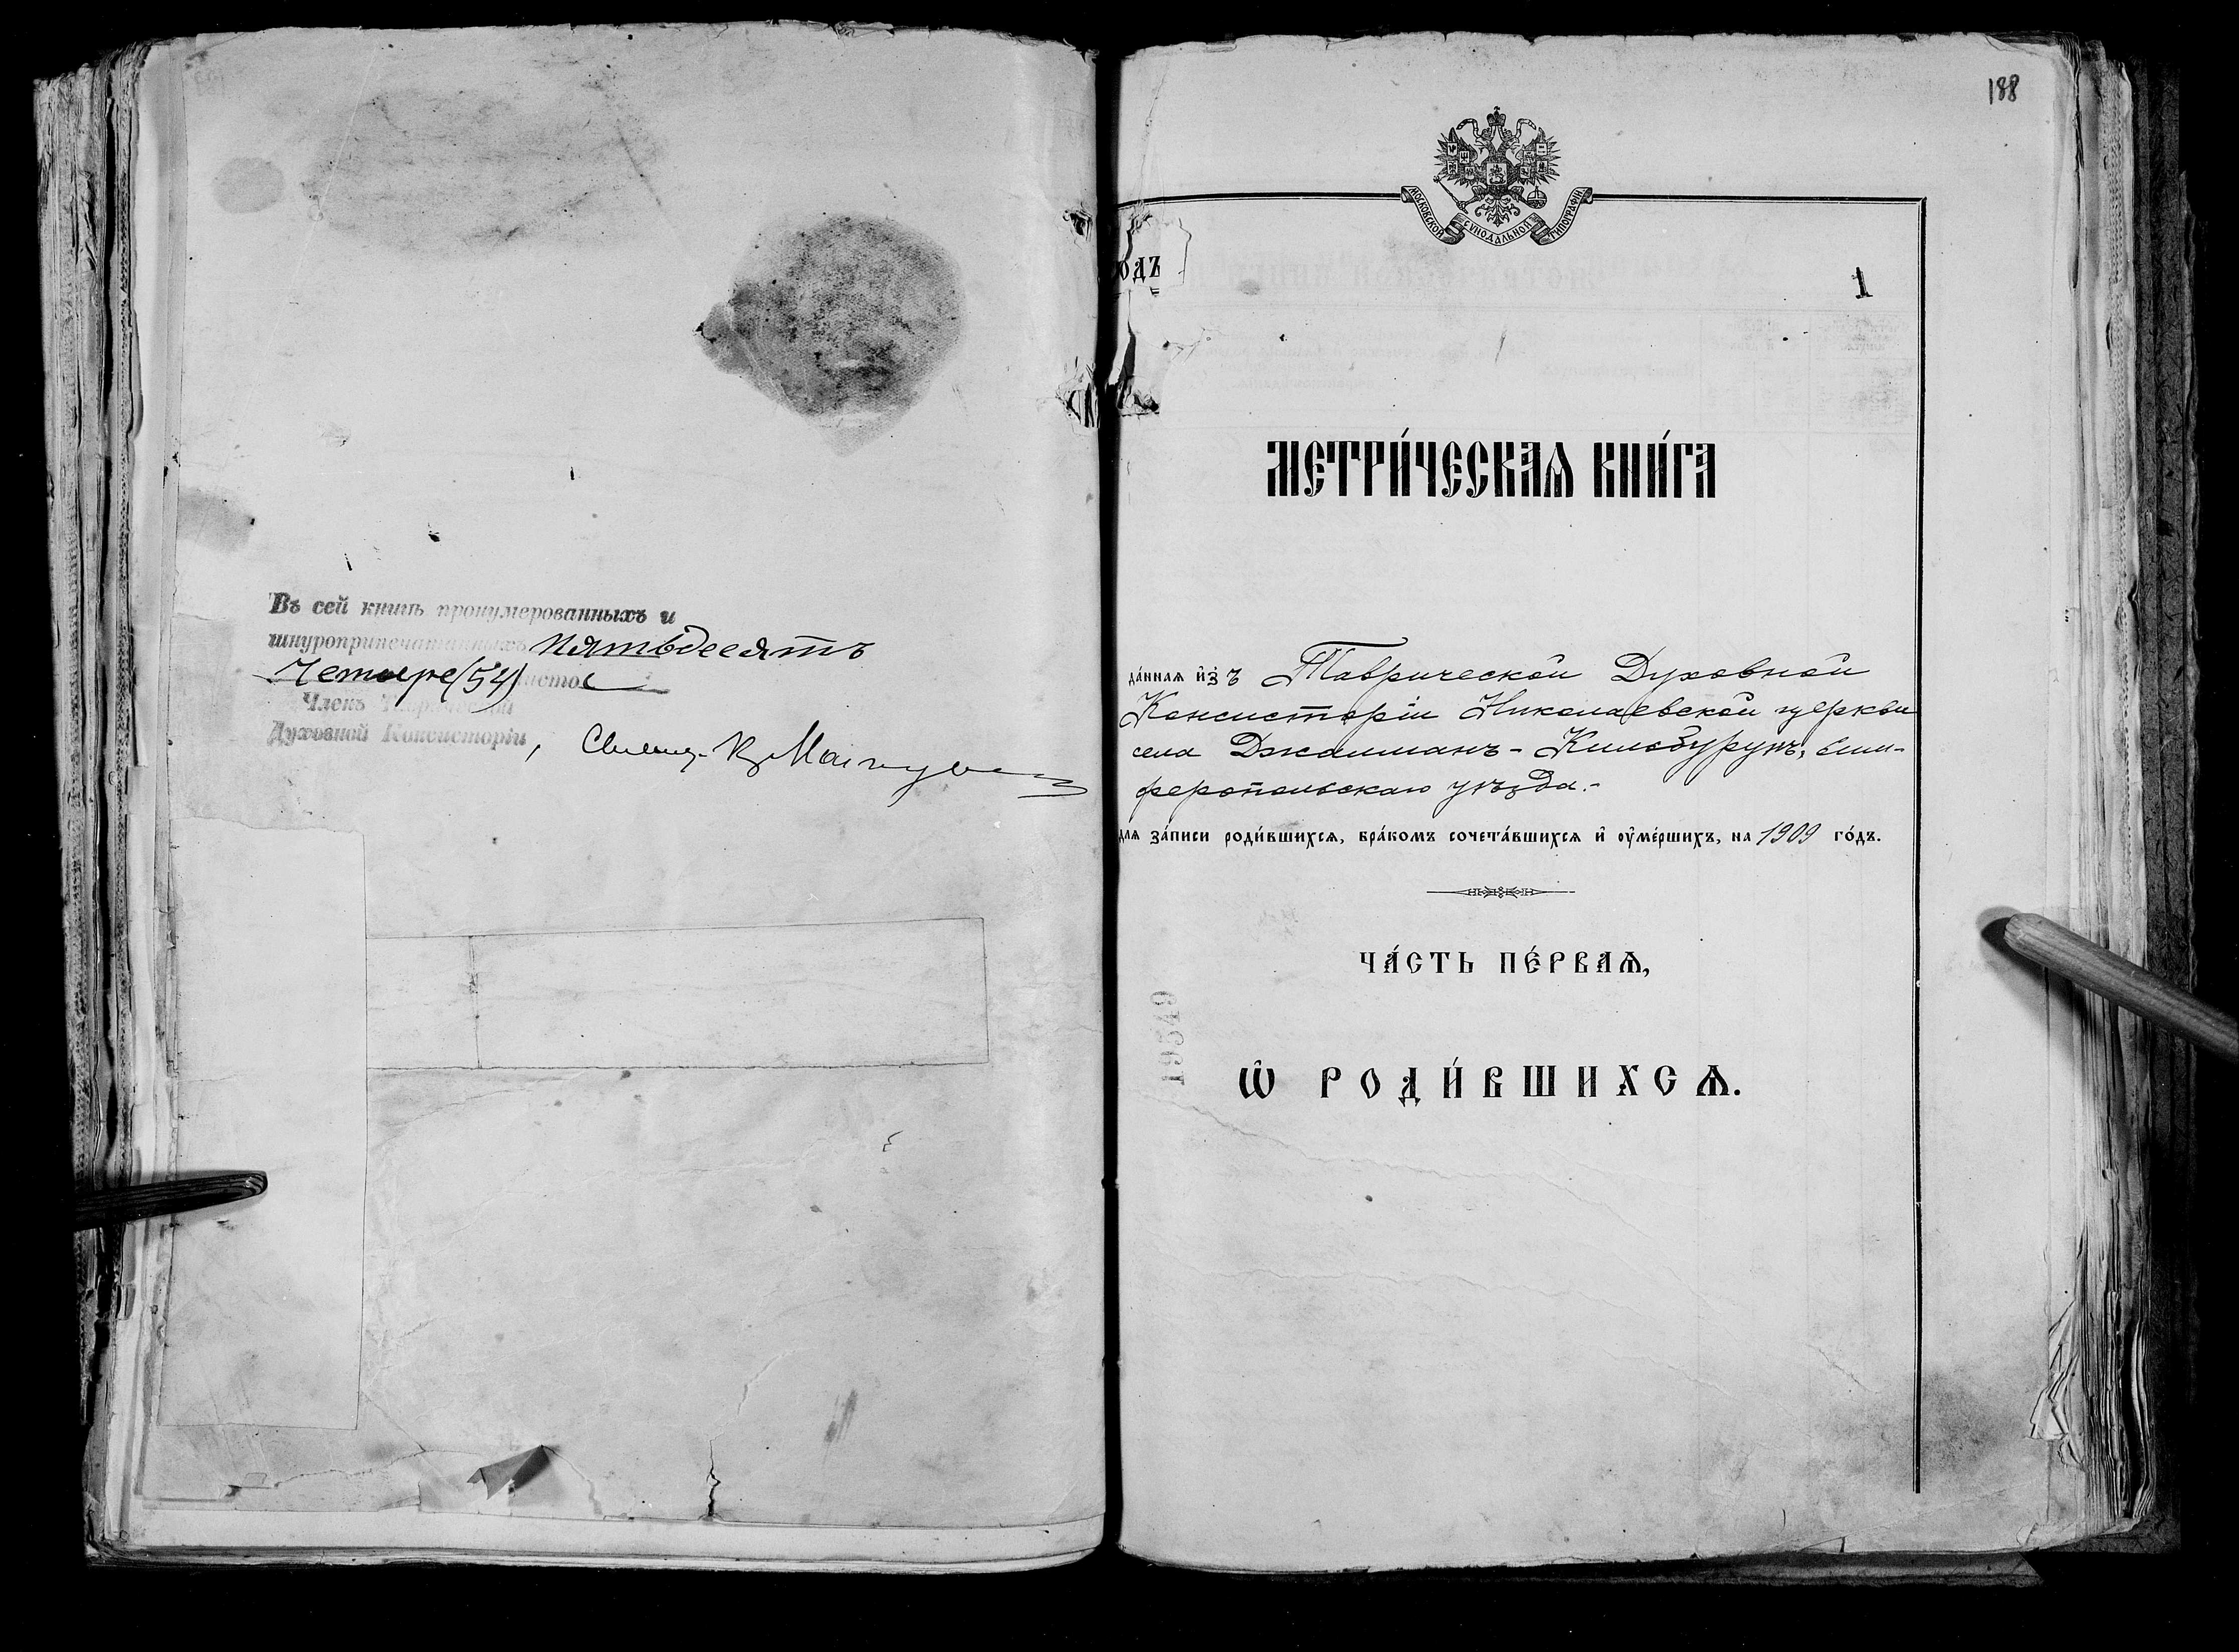 Въ сей книгѣ пронумерованныхъ и
шнуроприпечатанныхъ пятьдесятъ
Четыре (54) листо
Членъ Таврической
Духовной Консисторіи,
188
МОСКОВСКОЙ СѴНОДАЛЬНОЙ ТИПОГРАФІИ
одъ
1
МЕТРИ́ЧЕСКАѦ КНИ́ГА
да́нная и҆зъ Таврической Духовной
Консисторіи Николаевской церкви
села Джалманъ-Кильбурунъ, Сим-
феропольскаго уѣзда.-
для за́писи роди́вшихсѧ, бра́комъ сочета́вшихсѧ и҆ ᲂу҆ме́ршихъ, на 1909 го́дъ.
ЧА́СТЬ ПЕ́РВАѦ,
19549
Ѽ РОДИ́ВШИХСѦ.